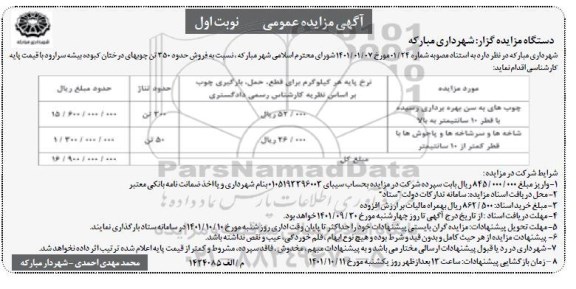 آگهی مزایده عمومی نوبت اول
دستگاه مزایده گزار: شهرداری مبارکه
شهرداری مبارکه در نظر دارد به استناد مصوبه شماره ۰۱/۲۴ مورخ ۱۴۰۱/۰۱/۰۷ شورای محترم اسلامی شهر مبارکه، نسبت به فروش حدود ۳۵۰ تن چوبهای درختان کبوده بیشه سرارود با قیمت پایه
کارشناسی اقدام نماید:
مورد مزایده
نرخ پایه هر کیلوگرم برای قطع، حمل، بارگیری چوب بر اساس نظریه کارشناس رسمی دادگستری
حدود تناژ
حدود مبلغ ریال
چوب های به سن بهره برداری رسیده با قطر ۱۰ سانتیمتر به بالا
۵۲/۰۰۰ ریال
۳۰۰ تن
۱۵/۶۰۰/۰۰۰/۰۰۰
شاخه ها و سرشاخه ها و پاجوش ها با قطر کمتر از ۱۰ سانتیمتر
۲۶/۰۰۰ ریال
۵۰ تن
۱/۳۰۰/۰۰۰/۰۰۰
مبلغ کل
۱۶/۹۰۰/۰۰۰/۰۰۰
شرایط شرکت در مزایده:
۱-واریز مبلغ ۸۴۵/۰۰۰/۰۰۰ ریال بابت سپرده شرکت در مزایده بحساب سیبای ۰۱۰۵۱۹۳۳۹۶۰۰۳ بنام شهرداری و یا اخذ ضمانت نامه بانکی معتبر
۲-محل دریافت اسناد مزایده: سامانه تدارکات دولت "ستاد"
۳-مبلغ خرید اسناد: ۸۶۲/۵۰۰ ریال بهمراه مالیات بر ارزش افزوده
۴-مهلت دریافت اسناد: از تاریخ درج آگهی تا روز چهارشنبه مورخ ۱۴۰۱/۰۹/۳۰ خواهد بود.
۵-مهلت تحویل پیشنهادات: مزایده گران بایستی پیشنهادات خود را حداکثر تا پایان وقت اداری روز شنبه مورخ ۱۴۰۱/۱۰/۱۰ در سامانه ستاد بارگذاری نمایند.
۶-پیشنهادات مزایده از هر حیث کامل و بدون قید و شرط بوده و هیچ نوع ابهام، قلم خوردگی، عیب و نقص نداشته باشد.
۷-شهرداری در رد یا قبول پیشنهادات ارسالی مختار می باشد و به پیشنهادات مبهم، مخدوش، فاقد سپرده، مشروط و کمتر از قیمت پایه اعلام شده ترتیب اثر داده نخواهد شد.
۸-زمان بازگشایی پیشنهادات: ساعت ۱۳ بعدازظهر روز یکشنبه مورخ ۱۴۰۱/۱۰/۱۱
م/الف ۱۴۲۴۰۸۵
محمد مهدی احمدی - شهردار مبارکه
ParsNamadData